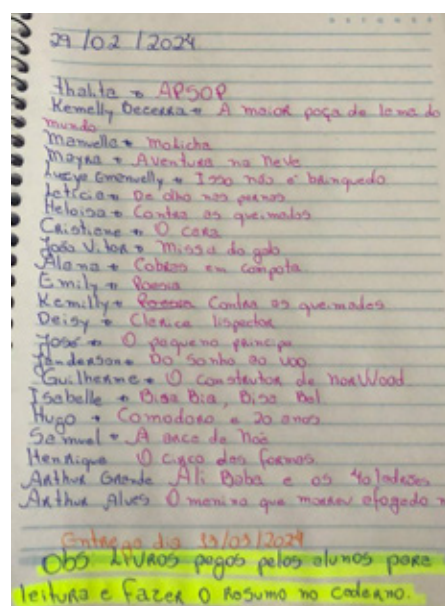 29/02/2024
Thalita → APSOP
Kemelly Becerra → A maior poça de lama do
mundo
Manuella → Malicha
Mayra → Aventura na Neve
Emanuelly → Isso não é brinquedo
Letícia → De olho nas penas
Heloisa → Contra as queimadas
Cristiane → O cara
João Vitor → Missa do galo
Alana → Cobras em compota
Emily → Poesia
Kemilly → Contra as queimadas
Deisy → Clarice lispector
José → O pequeno príncipe
Janderson → Do sonho ao voo
Guilherme → O construtor de NorWood
Isabelle → Bisa Bia, Bisa Bel
Hugo → Comodoro e 20 anos
Samuel → A arca de Noé
Henrique O circo das formas
Arthur Grande Ali Baba e os 40 ladrões
Arthur Alves O menino que morreu afogado n
Entrega dia /03/2024
Obs LIVROS pegos pelos alunos para
leitura e fazer o Resumo no caderno.